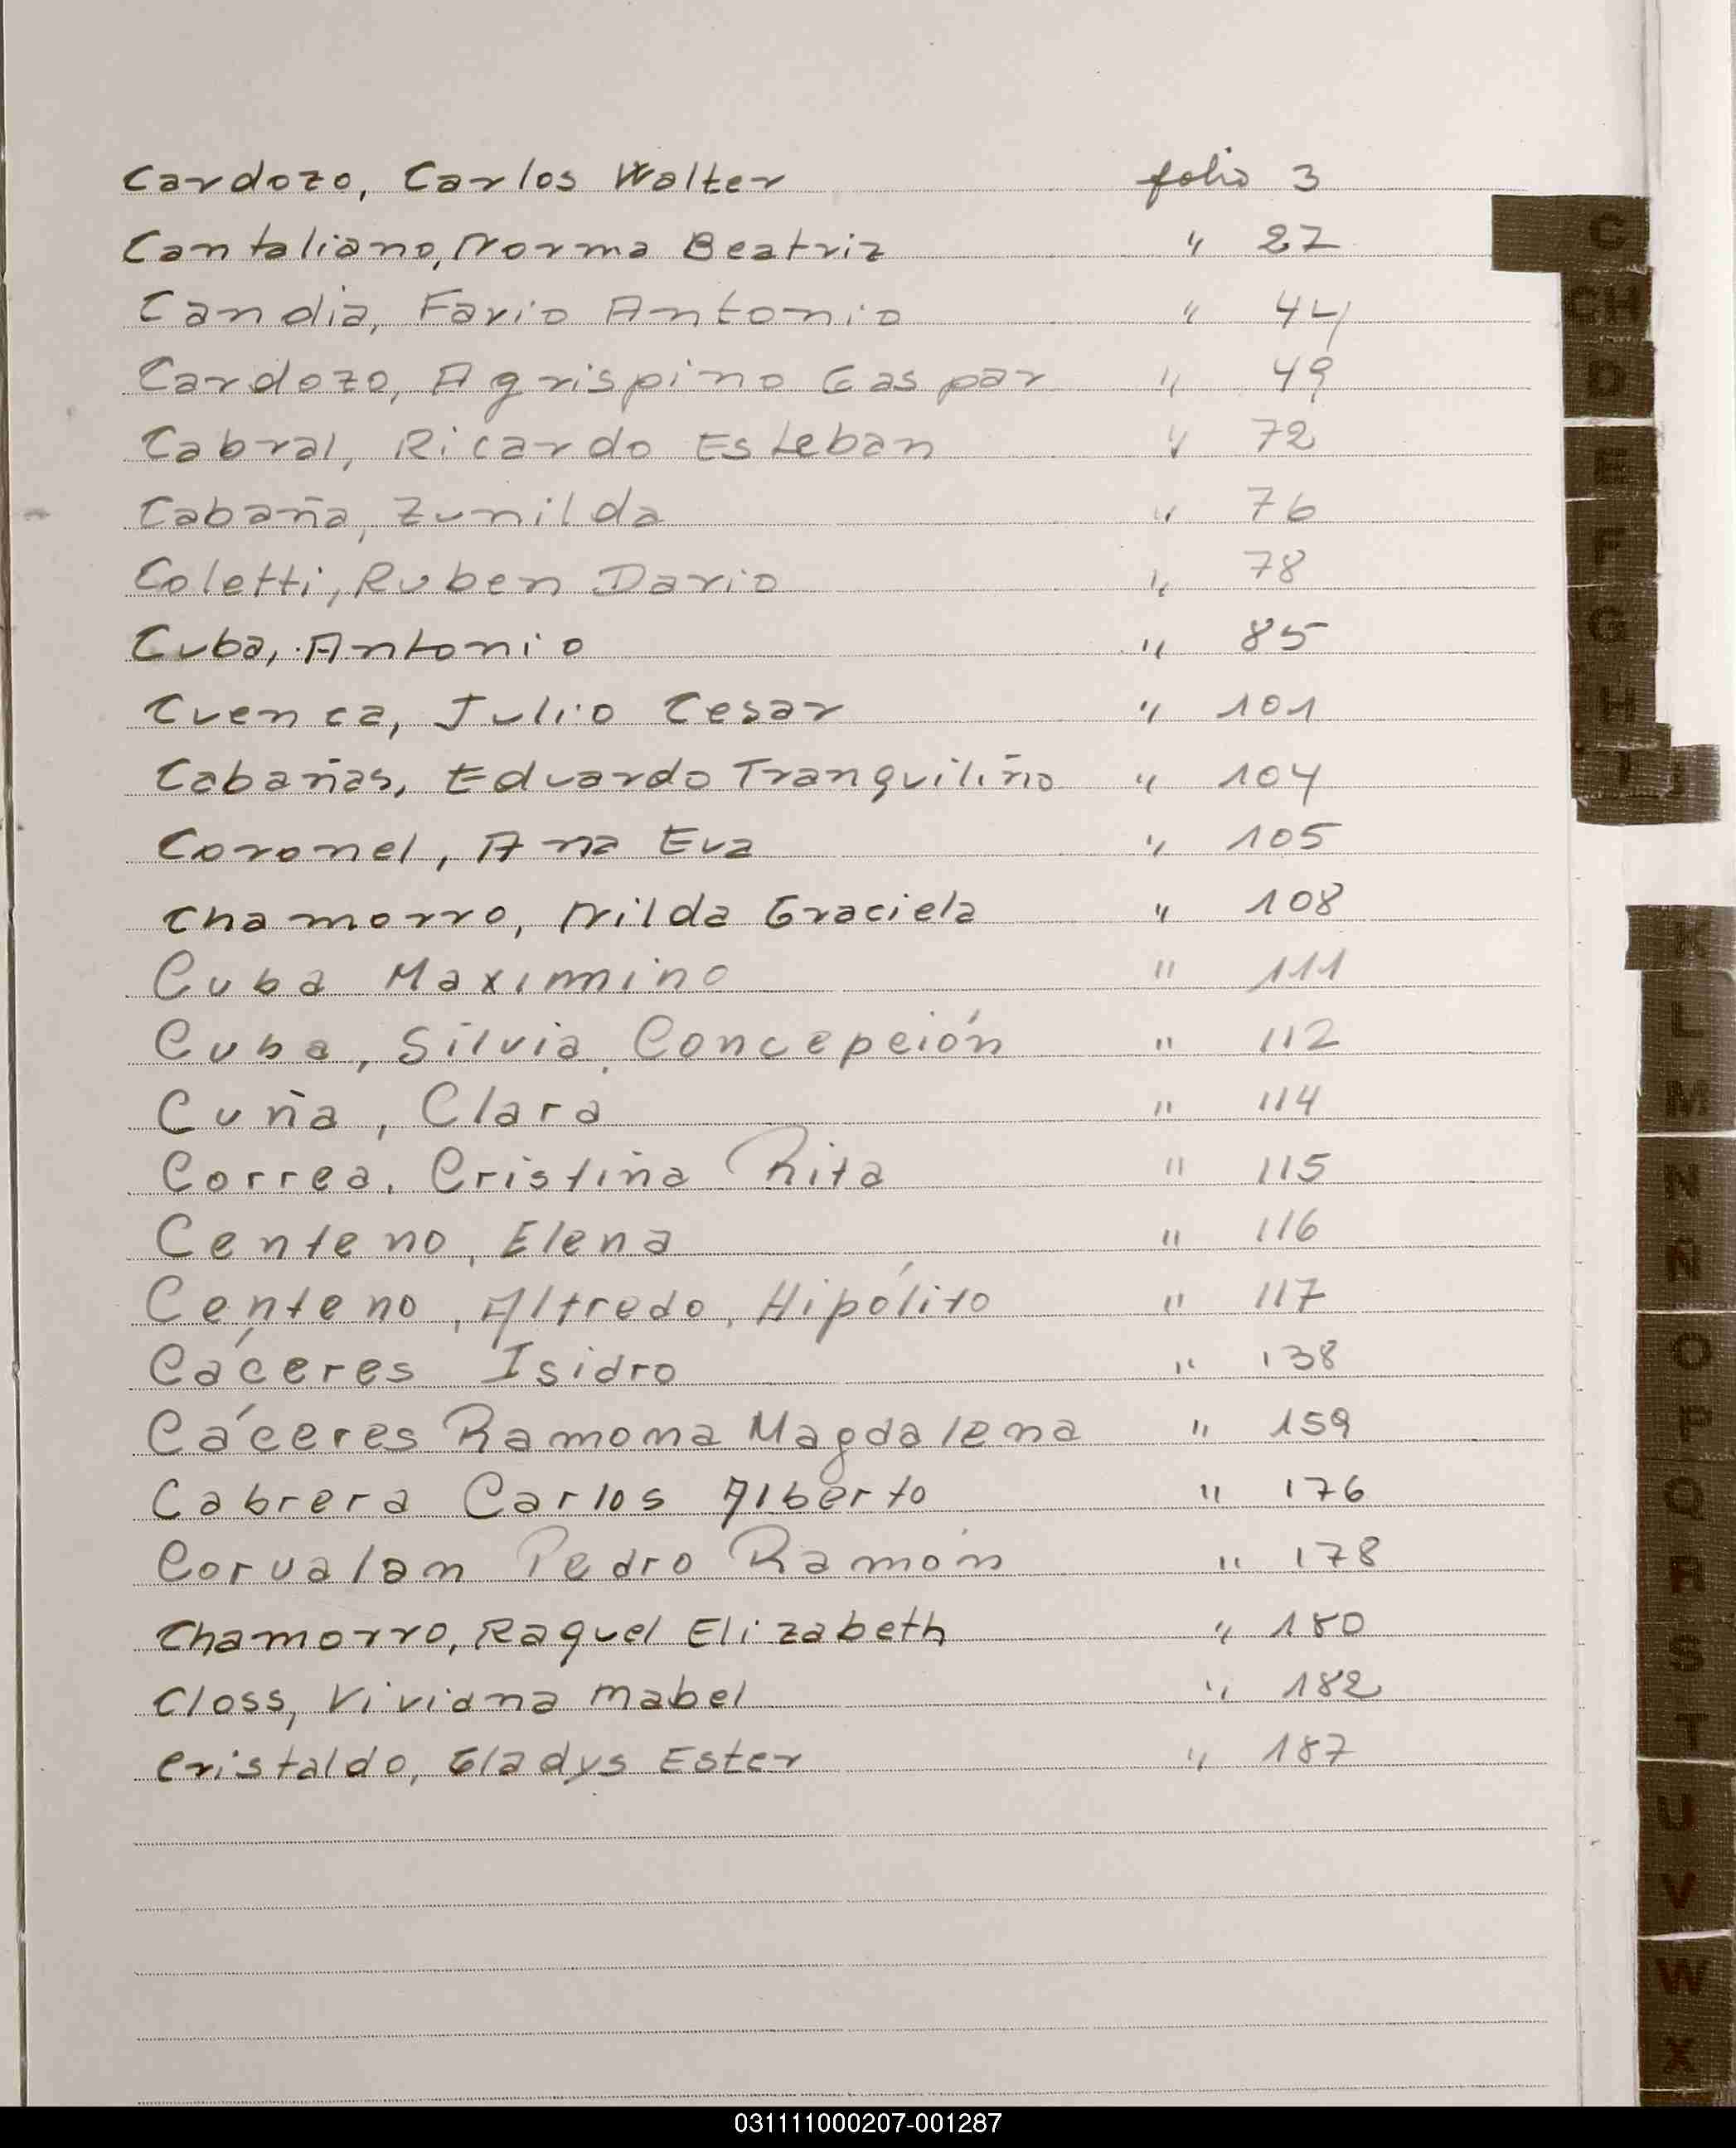 Cardozo, Carlos Walter folio 3
Cantaliano, Norma Beatriz " 27
Candia, Favio Antonio " 44
Cardozo, Agrispino Gaspar " 49
Cabral, Ricardo Esteban " 72
Cabaña, Zunilda " 76
Coletti, Ruben Dario " 78
Cuba, Antonio " 85
Cuenca, Julio Cesar " 101
Cabañas, Eduardo Tranquiliño " 104
Coronel, Ana Eva " 105
Chamorro, Nilda Graciela " 108
Cuba Maximino " 111
Cuba, Silvia, Concepción " 112
Cuña, Clara " 114
Correa, Cristina Rita " 115
Centeno, Elena " 116
Centeno, Alfredo, Hipólito " 117
Cáceres Isidro " 138
Cáceres Ramona Magdalena " 159
Cabrera Carlos Alberto " 176
Corvalan Pedro Ramón " 178
Chamorro, Raquel Elizabeth " 180
Closs, Viviana Mabel " 182
Cristaldo, Gladys Ester " 187
C
CH
D
E
F
G
H
I J
K
L
M
N
Ñ
O
P
Q
R
S
T
U
V
W
X
031111000207-001287